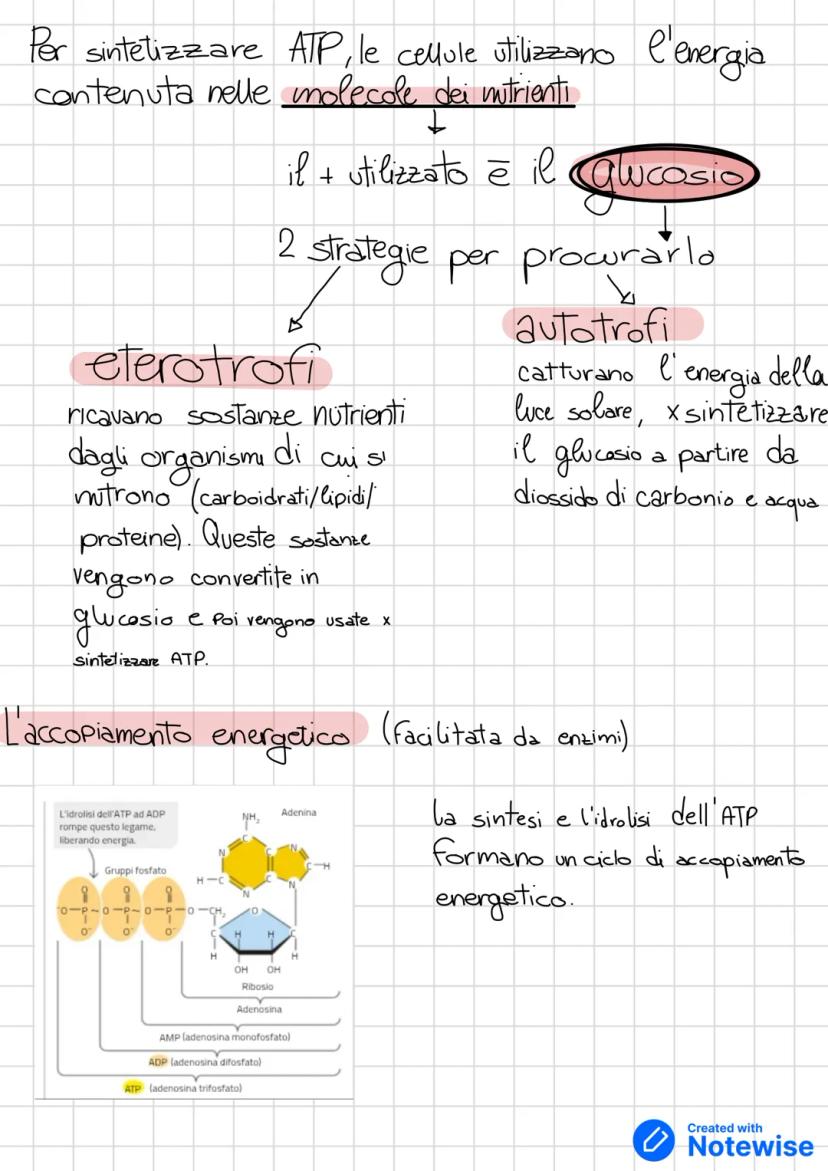 Per sintetizzare ATP, le cellule utilizzano l'energia
contenuta nelle molecole dei nutrienti
il + utilizzato è il glucosio
2 strategie per procurarlo
eterotrofi
ricavano sostanze nutrienti
dagli organismi di cui si
nutrono (carboidrati/lipidi/
proteine). Queste sostanze
vengono convertite in
glucosio e poi vengono usate x
sintetizzare ATP.
autotrofi
catturano l'energia della
luce solare, x sintetizzare
il glucosio a partire da
diossido di carbonio e acqua
L'accopiamento energetico (facilitata da enzimi)
L'idrolisi dell'ATP ad ADP
rompe questo legame,
liberando energia.
Gruppi fosfato
NH₂ Adenina
N C N
C C–H
H–C C
N N
O O O
⁻O–P–O–P–O–P–O–CH₂ O
O⁻ O⁻ O⁻
C H H C
H H
OH OH
Ribosio
Adenosina
AMP (adenosina monofosfato)
ADP (adenosina difosfato)
ATP (adenosina trifosfato)
La sintesi e l'idrolisi dell'ATP
formano un ciclo di accopiamento
energetico.
Created with
Notewise